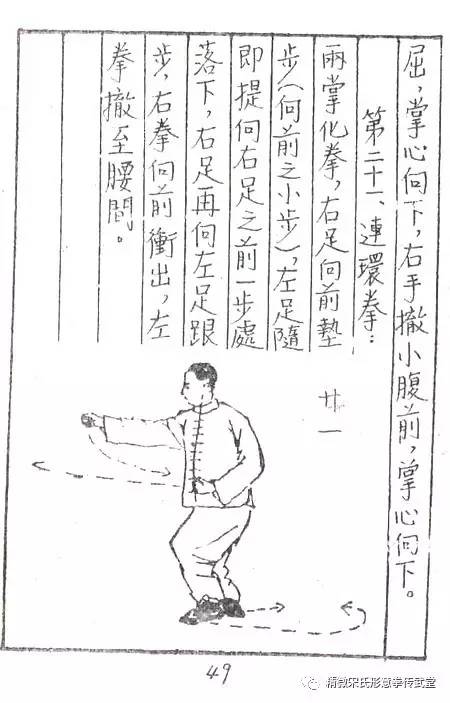 屈，掌心向下，右手撤小腹前，掌心向下。
第二十一、連環拳：
兩掌化拳，右足向前墊
步（向前之小步），左足隨
即提向右足之前一步處
落下，右足再向左足跟
步，右拳向前衝出，左
拳撤至腰間。
廿一
49
精微宋氏形意拳传武堂